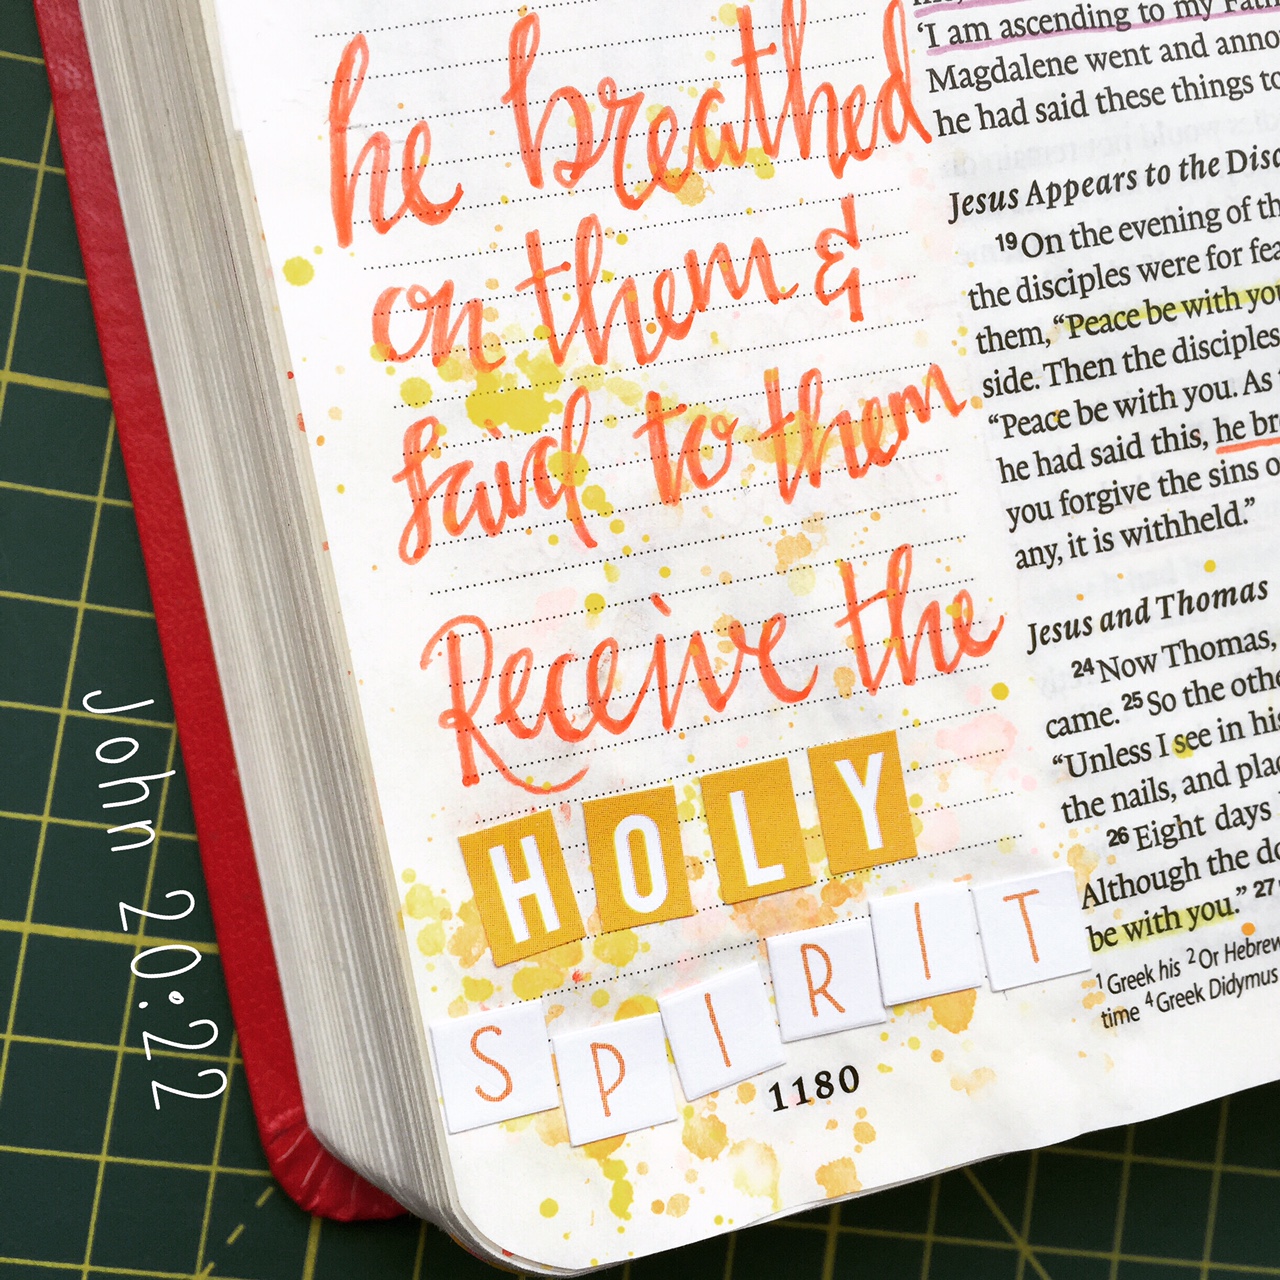 he breathed
on them &
said to them
Receive the
HOLY
SPIRIT
1180
‘I am ascending to my
Magdalene went and
he had said these things to
Jesus Appears to the
19 On the evening of
the disciples were for
them, “Peace be with
side. Then the disciples
“Peace be with you. As
he had said this, he
you forgive the sins
any, it is withheld.”
Jesus and Thomas
24 Now Thomas,
came. 25 So the
“Unless I see in
the nails, and
26 Eight days
Although the
be with you.” 27
1 Greek his 2 Or
time 4 Greek Didymus
John 20:22